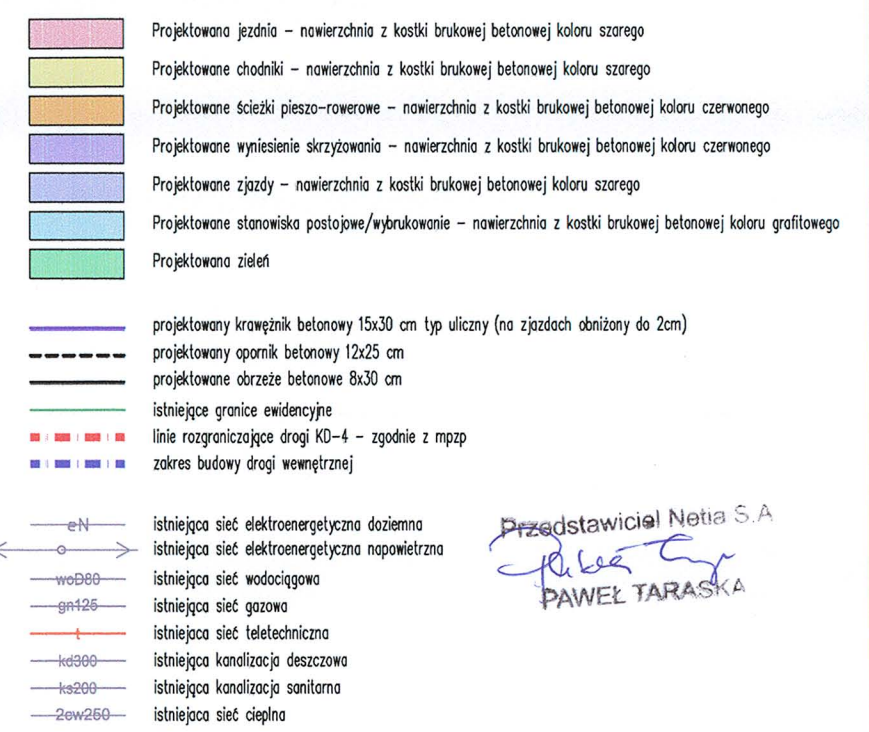 Projektowana jezdnia – nawierzchnia z kostki brukowej betonowej koloru szarego
Projektowane chodniki – nawierzchnia z kostki brukowej betonowej koloru szarego
Projektowane ścieżki pieszo-rowerowe – nawierzchnia z kostki brukowej betonowej koloru czerwonego
Projektowane wyniesienie skrzyżowania – nawierzchnia z kostki brukowej betonowej koloru czerwonego
Projektowane zjazdy – nawierzchnia z kostki brukowej betonowej koloru szarego
Projektowane stanowiska postojowe/wybrukowanie – nawierzchnia z kostki brukowej betonowej koloru grafitowego
Projektowana zieleń
projektowany krawężnik betonowy 15x30 cm typ uliczny (na zjazdach obniżony do 2cm)
projektowany opornik betonowy 12x25 cm
projektowane obrzeże betonowe 8x30 cm
istniejące granice ewidencyjne
linie rozgraniczające drogi KD-4 – zgodnie z mpzp
zakres budowy drogi wewnętrznej
eN istniejąca sieć elektroenergetyczna doziemna
istniejąca sieć elektroenergetyczna napowietrzna
woD80 istniejąca sieć wodociągowa
gn125 istniejąca sieć gazowa
t istniejąca sieć teletechniczna
kd300 istniejąca kanalizacja deszczowa
ks200 istniejąca kanalizacja sanitarna
2cw250 istniejąca sieć cieplna
Przedstawiciel Netia S.A
PAWEŁ TARASKA